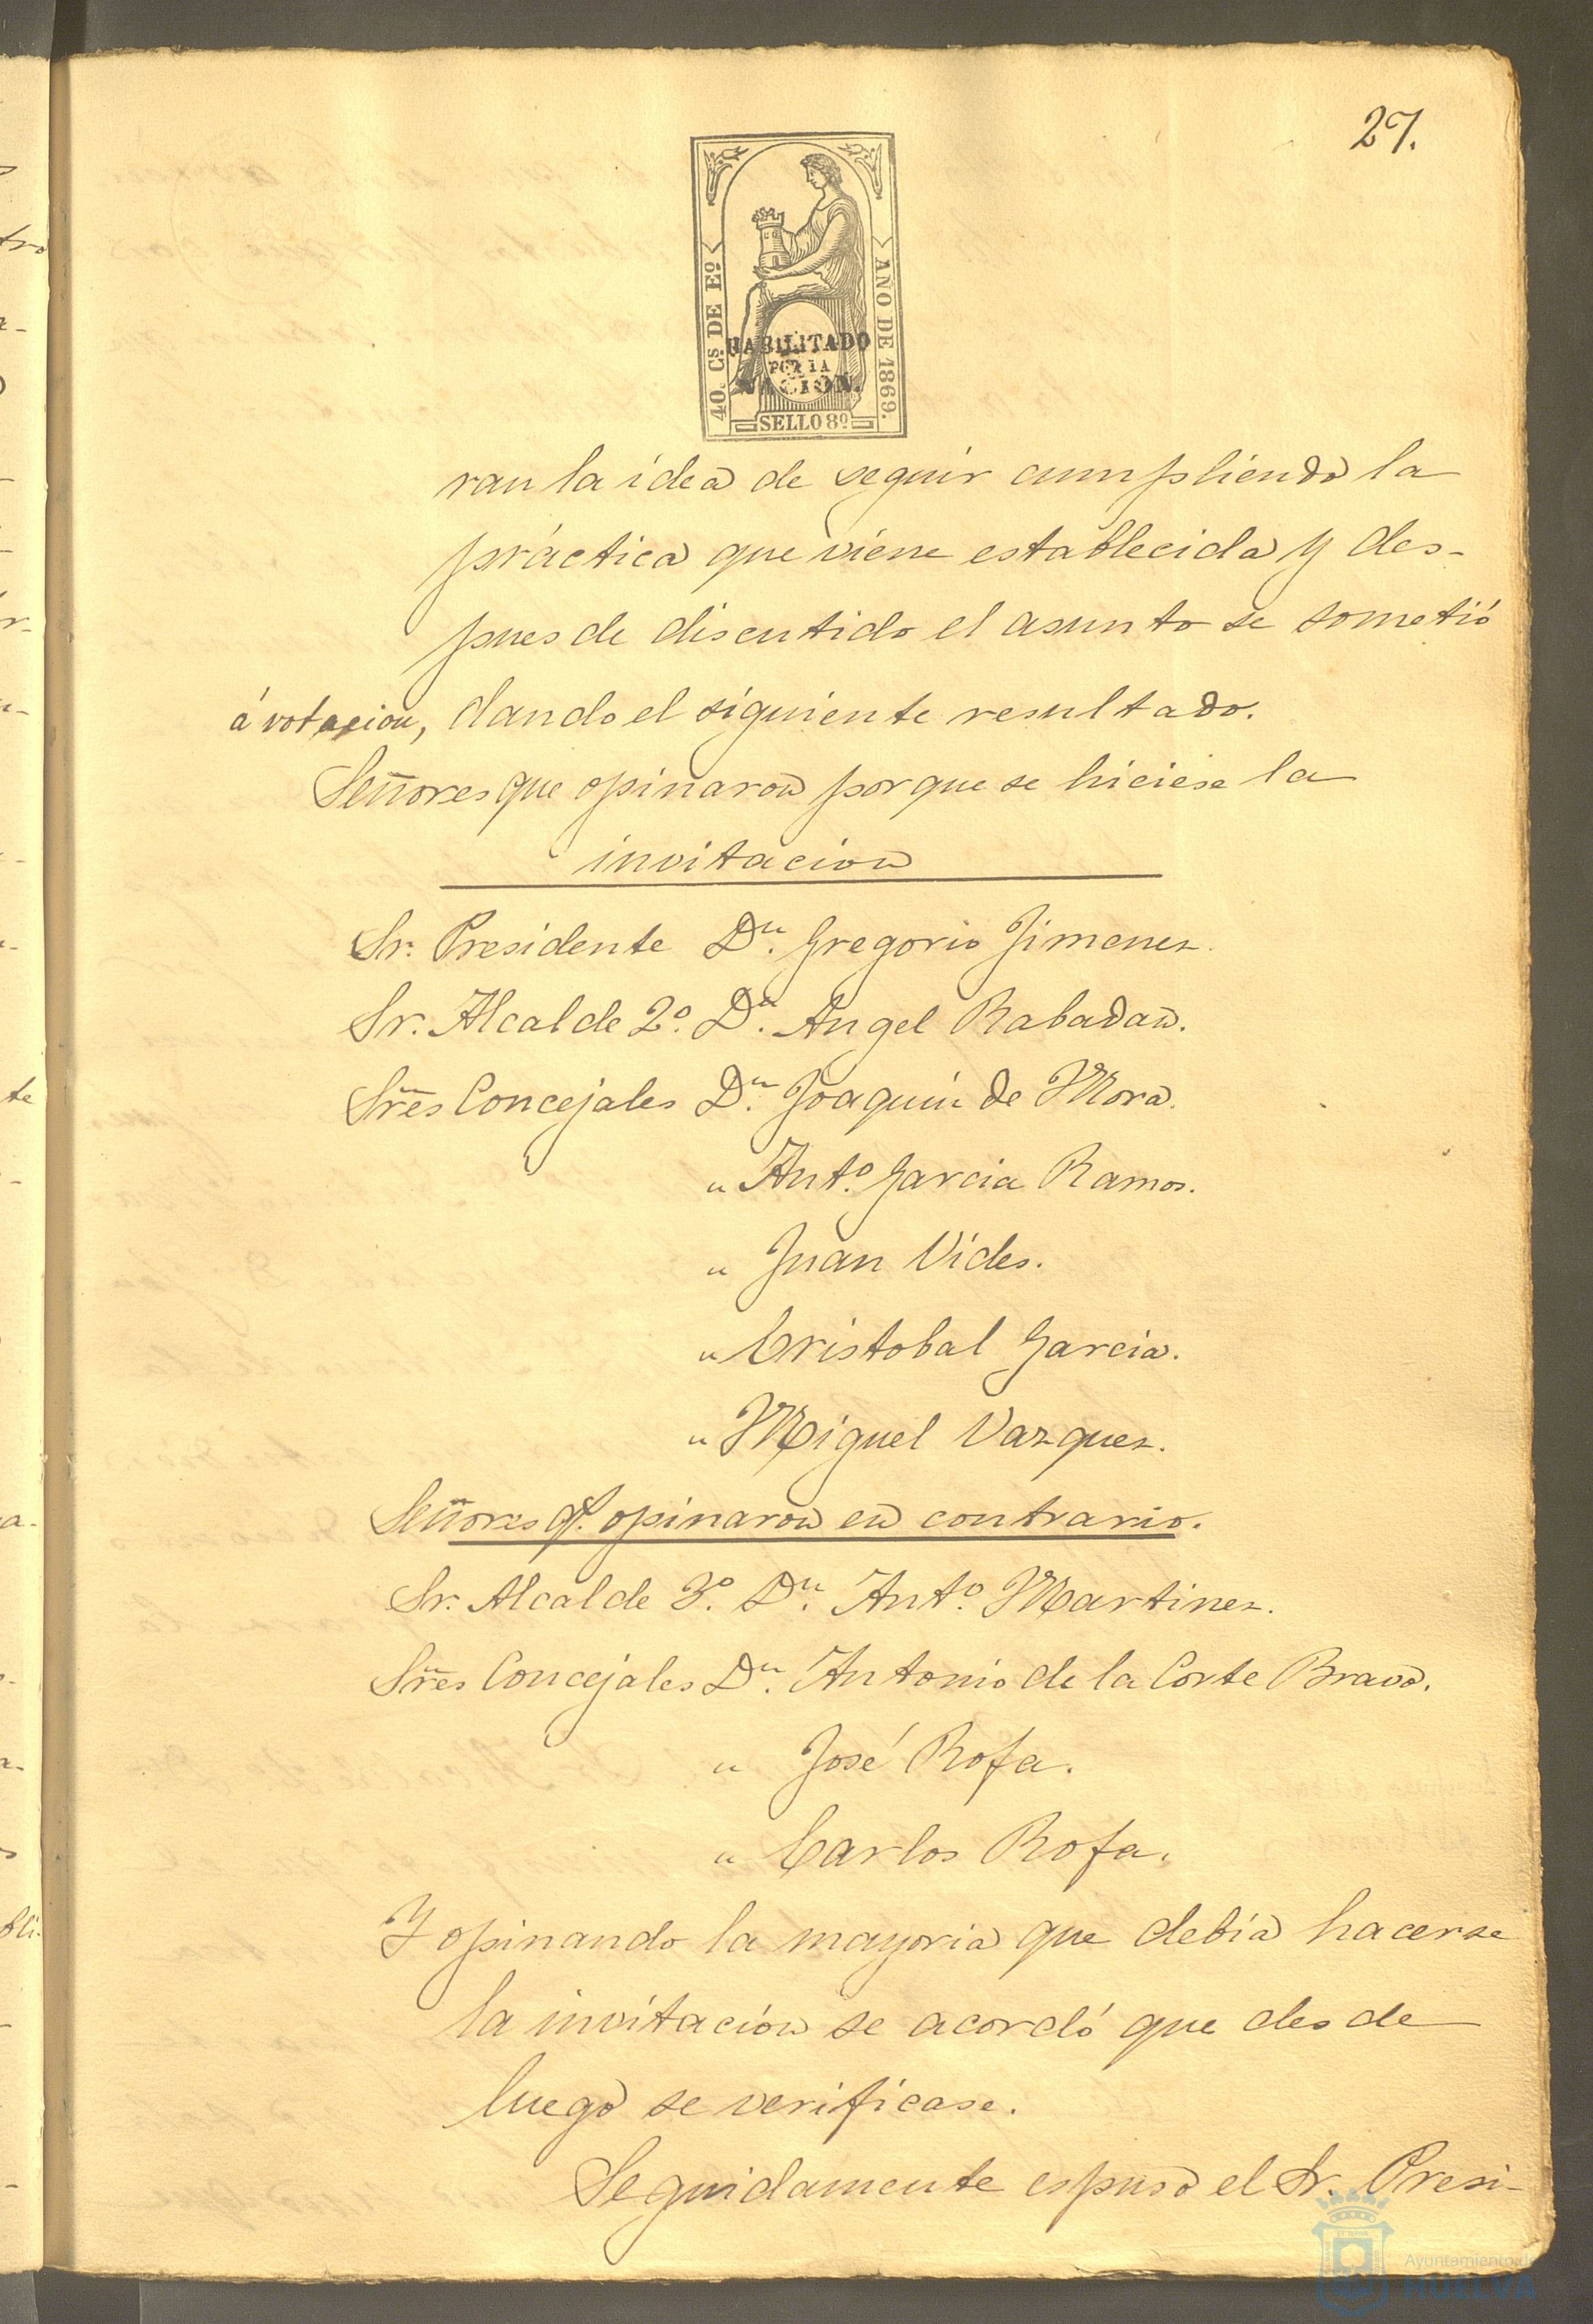 27.
40. Cs. DE Eº
AÑO DE 1869.
HABILITADO
POR LA
NACION.
SELLO 8º
ran la idea de seguir cumpliendo la
práctica que viene establecida y des-
pues de discutido el asunto se sometió
á votacion, dando el siguiente resultado.
Señores que opinaron porque se hiciese la
invitacion
Sr. Presidente Dn. Gregorio Jimenez.
Sr. Alcalde 2º. Dn. Angel Rabadan.
Sres Concejales Dn. Joaquin de Mora.
" Antº. Garcia Ramos.
" Juan Vides.
" Cristobal Garcia.
" Miguel Vazquez.
Señores q. opinaron en contrario.
Sr. Alcalde 3º. Dn. Antº. Martinez.
Sres Concejales Dn. Antonio de la Corte Bravo.
" José Rofa.
" Carlos Rofa.
Y opinando la mayoria que debia hacerse
la invitación se acordó que desde
luego se verificase.
Seguidamente espuso el Sr. Presi-
Ayuntamiento de
HUELVA